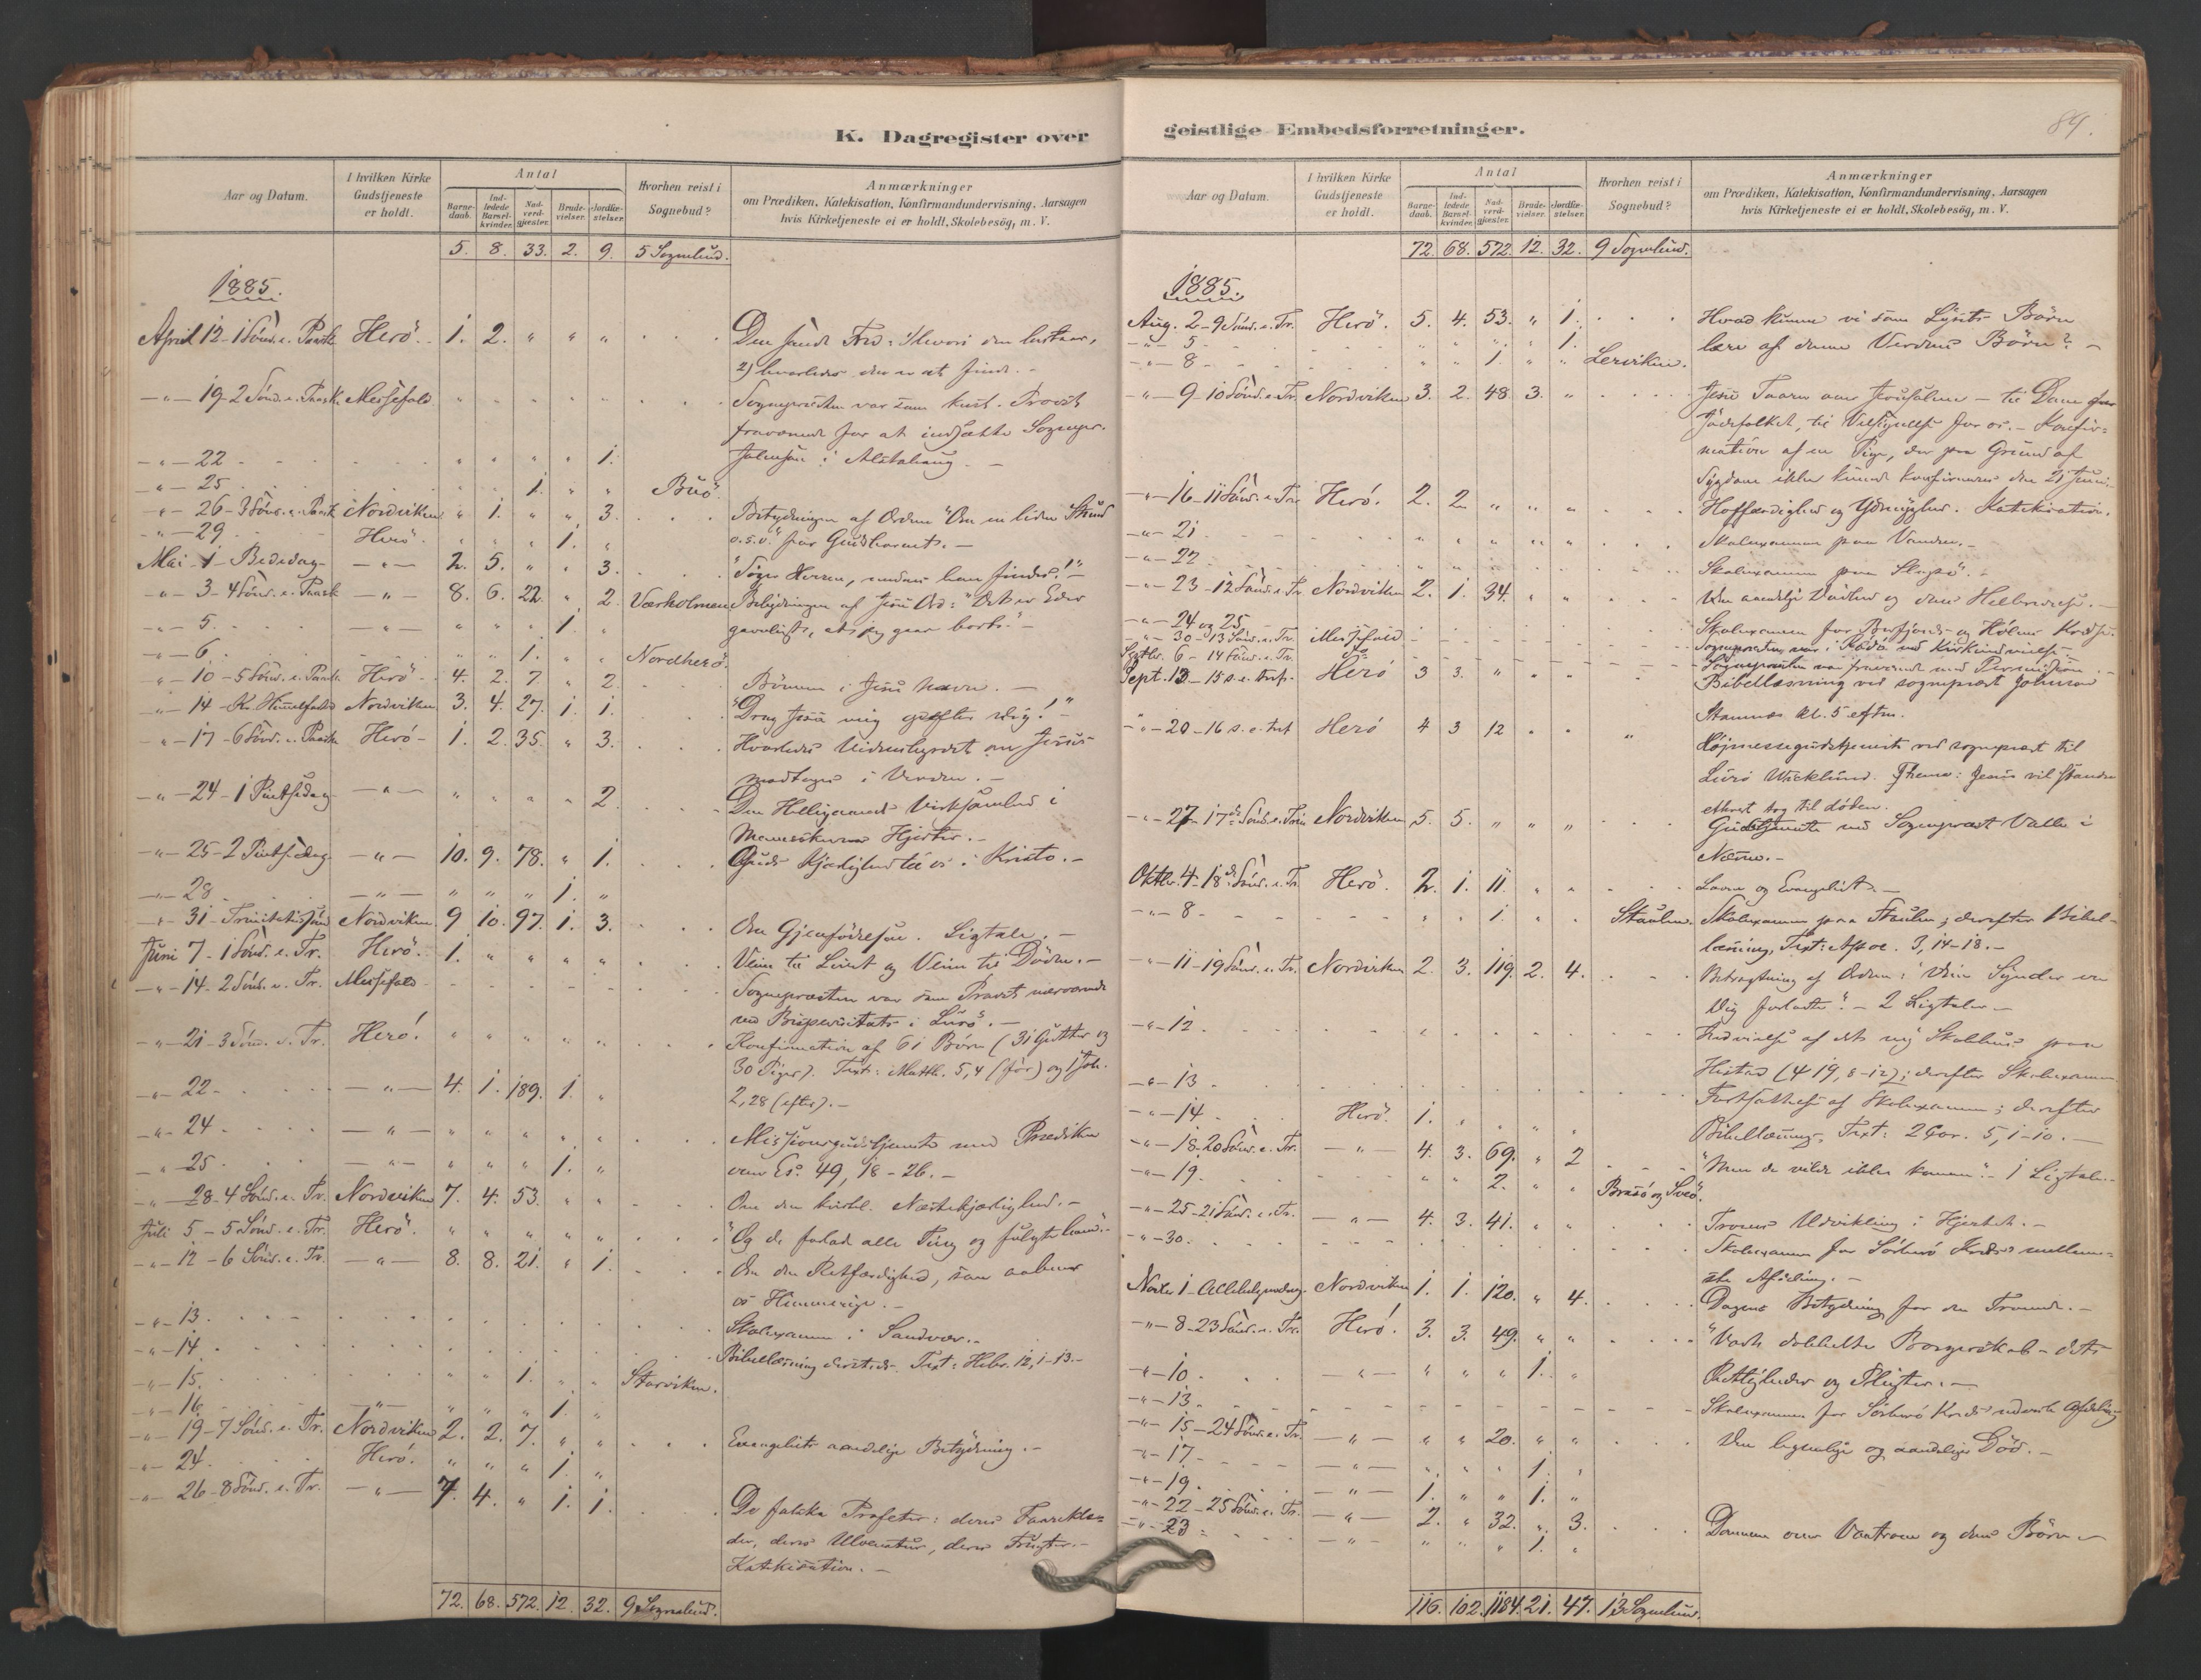 K. Dagregister over
Aar og Datum.
I hvilken Kirke Gudstjeneste er holdt.
Antal
Barne-daab.
Ind-ledede Barsel-kvinder.
Nad-verd-gjester.
Brude-vielser.
Jordfæ-stelser.
Hvorhen reist i Sognebud?
Anmærkninger
om Prædiken, Katekisation, Konfirmandundervisning, Aarsagen
hvis Kirketjeneste ei er holdt, Skolebesög, m. V.
5. 8. 33. 2. 9. 5 Sognebud.
1885.
April 12 - 1 Sönd. e. Paaske Herö. 1. 2. " " "
2) hvorledes den er at finde. -
-"- 19 - 2 Sönd. e. Paask. Messefald " " " " " Sognepræsten var som konst. Provst
fraværende for at indsætte Sognepr.
-"- 22 " " " " 1. i Alstahaug. -
-"- 25 " " 1. " " Buö.
-"- 26 - 3 Sönd. e. Paask Nordviken " 1. " " 3. Betydningen af Ordene "Om en liden Stund
-"- 29 Herö. " " " 1. " o.s.v." for Gudsbarnet. -
Mai 1 - Bededag -"- 2. 5. " " 3. "Söger Herren, medens han findes!" -
-"- 3 - 4 Sönd. e. Paask -"- 8. 6. 22. " 2. Værholmen Betydningen af Jesu Ord: "Det er Eder
-"- 5. -"- " " " 1. " gavnligt, at jeg gaar bort." -
-"- 6. " " 1. " " Nordherö.
-"- 10 - 5 Sönd. e. Paask Herö. 4. 2. 7. " 2. Bönnen i Jesu Navn. -
-"- 14 - Kr. Himmelfartsd. Nordviken 3. 4. 27. 1. 1. "Drag Jesu mig efter dig!" -
-"- 17 - 6 Sönd. e. Paaske Herö - 1. 2. 35. " 3. Hvorledes Vidnesbyrdet om Jesus
modtages i Verden. -
-"- 24 - 1 Pintsedag -"- " " " " 2. Den Helligaands Virksomhed i
Menneskenes Hjerter. -
-"- 25 - 2 Pintsedag -"- 10. 9. 78. " 1. Guds Kjærlighed til os i Kristo. -
-"- 28 -"- " " " 1. "
-"- 31 - Trinitatissönd. Nordviken 9 10. 97. 1. 3. Om Gjenfödelsen. Ligtale. -
Juni 7 - 1 Sönd. e. Tr. Herö. 1. " " " " Veien til Livet og Veien til Döden. -
-"- 14 - 2 Sönd. e. Tr. Messefald - - - - - Sognepræsten var som Provst nærværende
ved Bispevisitats i Lurö. -
-"- 21 - 3 Sönd. e. Tr. Herö. " " " " " Konfirmation af 61 Börn (31 Gutter og
30 Piger). Text: Matth. 5,4 (för) og 1 Joh.
-"- 22 -"- 4. 1. 189. 1. " 2,28 (efter). -
-"- 24 -"- " " " " " Missionsgudstjeneste med Prædiken
-"- 25 -"- " " " 1. " over Es. 49, 18-26. -
-"- 28 - 4 Sönd. e. Tr. Nordviken 7. 4. 53. " " Om den kristel. Næstekjærlighed. -
Juli 5 - 5 Sönd. e. Tr. Herö. " " " " " "Og de forlod alle Ting og fulgte ham." -
-"- 12 - 6 Sönd. e. Tr. -"- 8. 8. 21. " 1. Om den Retfærdighed, som aabner
os Himmerige. -
-"- 13 Skoleexamen i Sandvær. -
-"- 14 Bibellæsning dersteds. Text: Hebr. 12,1-13. -
-"- 15. " " 1. " " Storviken.
-"- 16. -"- " " " 1. "
-"- 19 - 7 Sönd. e. Tr. Nordviken 2. 2. 7. " " Evangeliets aandelige Betydning. -
-"- 24. Herö. " " " 1. "
-"- 26 - 8 Sönd. e. Tr. -"- 7. 4. " 1. 1. De falske Profeter: deres Faareklæ=
der, deres Ulvenatur, deres Frugter. -
Katekisation. -
72. 68. 572. 12. 32. 9 Sognebud.
geistlige Embedsforretninger.
89.
Aar og Datum.
I hvilken Kirke Gudstjeneste er holdt.
Antal
Barne-daab.
Ind-ledede Barsel-kvinder.
Nad-verd-gjester.
Brude-vielser.
Jordfæ-stelser.
Hvorhen reist i Sognebud?
Anmærkninger
om Prædiken, Katekisation, Konfirmandundervisning, Aarsagen
hvis Kirketjeneste ei er holdt, Skolebesög, m. V.
72. 68. 572. 12. 32. 9 Sognebud.
1885.
Aug. 2 - 9 Sönd. e. Tr. Herö. 5. 4. 53. " 1. Hvad kunne vi som Lysets Börn
-"- 5 " " " " 1. lære af denne Verdens Börn? -
-"- 8 " " 1. " " Lerviken.
-"- 9 - 10 Sönd. e. Tr. Nordviken 3. 2. 48. 3. " Jesu Taarer over Jerusalem - til Dom for
Jödefolket, til Velsignelse for os. - Konfir=
mation af en Pige, der paa Grund af
Sygdom ikke kunde konfirmeres den 21 Juni.
-"- 16 - 11 Sönd. e. Tr. Herö. 2. 2. " " " Hoffærdighed og Ydmyghed. Katekisation.
-"- 21 " " " " " Skoleexamen paa Vandve. -
-"- 22 Skoleexamen paa
-"- 23 - 12 Sönd. e. Tr. Nordviken 2. 1. 34. " " Den aandelige Dövhed og dens Helbredelse. -
-"- 24 og 25 Skoleexamen for og Kreds.
-"- 30 - 13 Sönd. e. Tr. Messefald Sognepræsten var i Rödö ved Kirkeindvielse -
Septbr. 6 - 14 Sönd. e. Tr. Do Sognepræsten var fraværende med Permission
Sept. 13 - 15 s. e. tref. Herö 3 3. " " " Bibellæsning ved sognepræst Johnson
Stamnes kl. 5 eftm.
-"- 20 - 16 s. e. tref Herö 4 3 12 " " " Höjmessegudstjeneste ved sognepræst til
Lurö Wicklund. Thema: Jesus vil standse
ethvert tog til döden.
-"- 27 - 17de Sönd. e. Trin Nordviken 5. 5. " " " Gudstjeneste ved Sognepræst Valle i
Næsne. -
Oktbr. 4 - 18de Sönd. e. Tr. Herö. 2. 1. 11. " " Loven og Evangeliet. -
-"- 8 " " 1. " " Staulen. Skoleexamen paa Staulen; derefter Bibel-
læsning, Text: Apoc. 3,14-18. -
-"- 11 - 19 Sönd. e. Tr. Nordviken 2. 3. 119. 2. 4. Betragtning af Ordene: "Dine Synder ere
Dig forladte". - 2 Ligtaler -
-"- 12 Indvielse af det ny Skolehus paa
(Ψ 19, 8-12); derefter Skoleexamen
-"- 13 Fortsættelse af Skoleexamen; derefter
-"- 14 Herö. 1. " " " " Bibellæsning, Text: 2 Cor. 5, 1-10. -
-"- 18 - 20 Sönd. e. Tr. -"- 4. 3. 69. " 2 "Men de vilde ikke komme." - 1 Ligtale. -
-"- 19. " " 2. " " Brasö og
-"- 25 - 21 Sönd. e. Tr. -"- 4. 3. 41. " " Troens Udvikling i Hjertet. -
-"- 30. Skoleexamen for Sörherö Kreds's mellem=
ste Afdeling. -
Novbr 1 - Allehelgensdag Nordviken 1. 1. 120. " 4. Dagens Betydning for den Troende. -
-"- 8 - 23 Sönd. e. Tr. Herö. 3. 3. 49. " " "Vort dobbelte Borgerskab - dets
-"- 10 -"- " " " 1. " Rettigheder og Pligter. -
-"- 13. Skoleexamen for Sörherö Kreds's nederste Afdeling
-"- 15 - 24 Sönd. e. Tr. -"- " " 20. " " Den legemlige og aandelige Död. -
-"- 17 -"- " " " 1. "
-"- 19. -"- 1. " " 1. "
-"- 22 - 25 Sönd. e. Tr. -"- 2. " 32. " 3. Dommen over Vantroen og dens Börn -
-"- 23 -"- " " " 1. "
116. 102. 1184. 21. 47. 13 Sognebud.